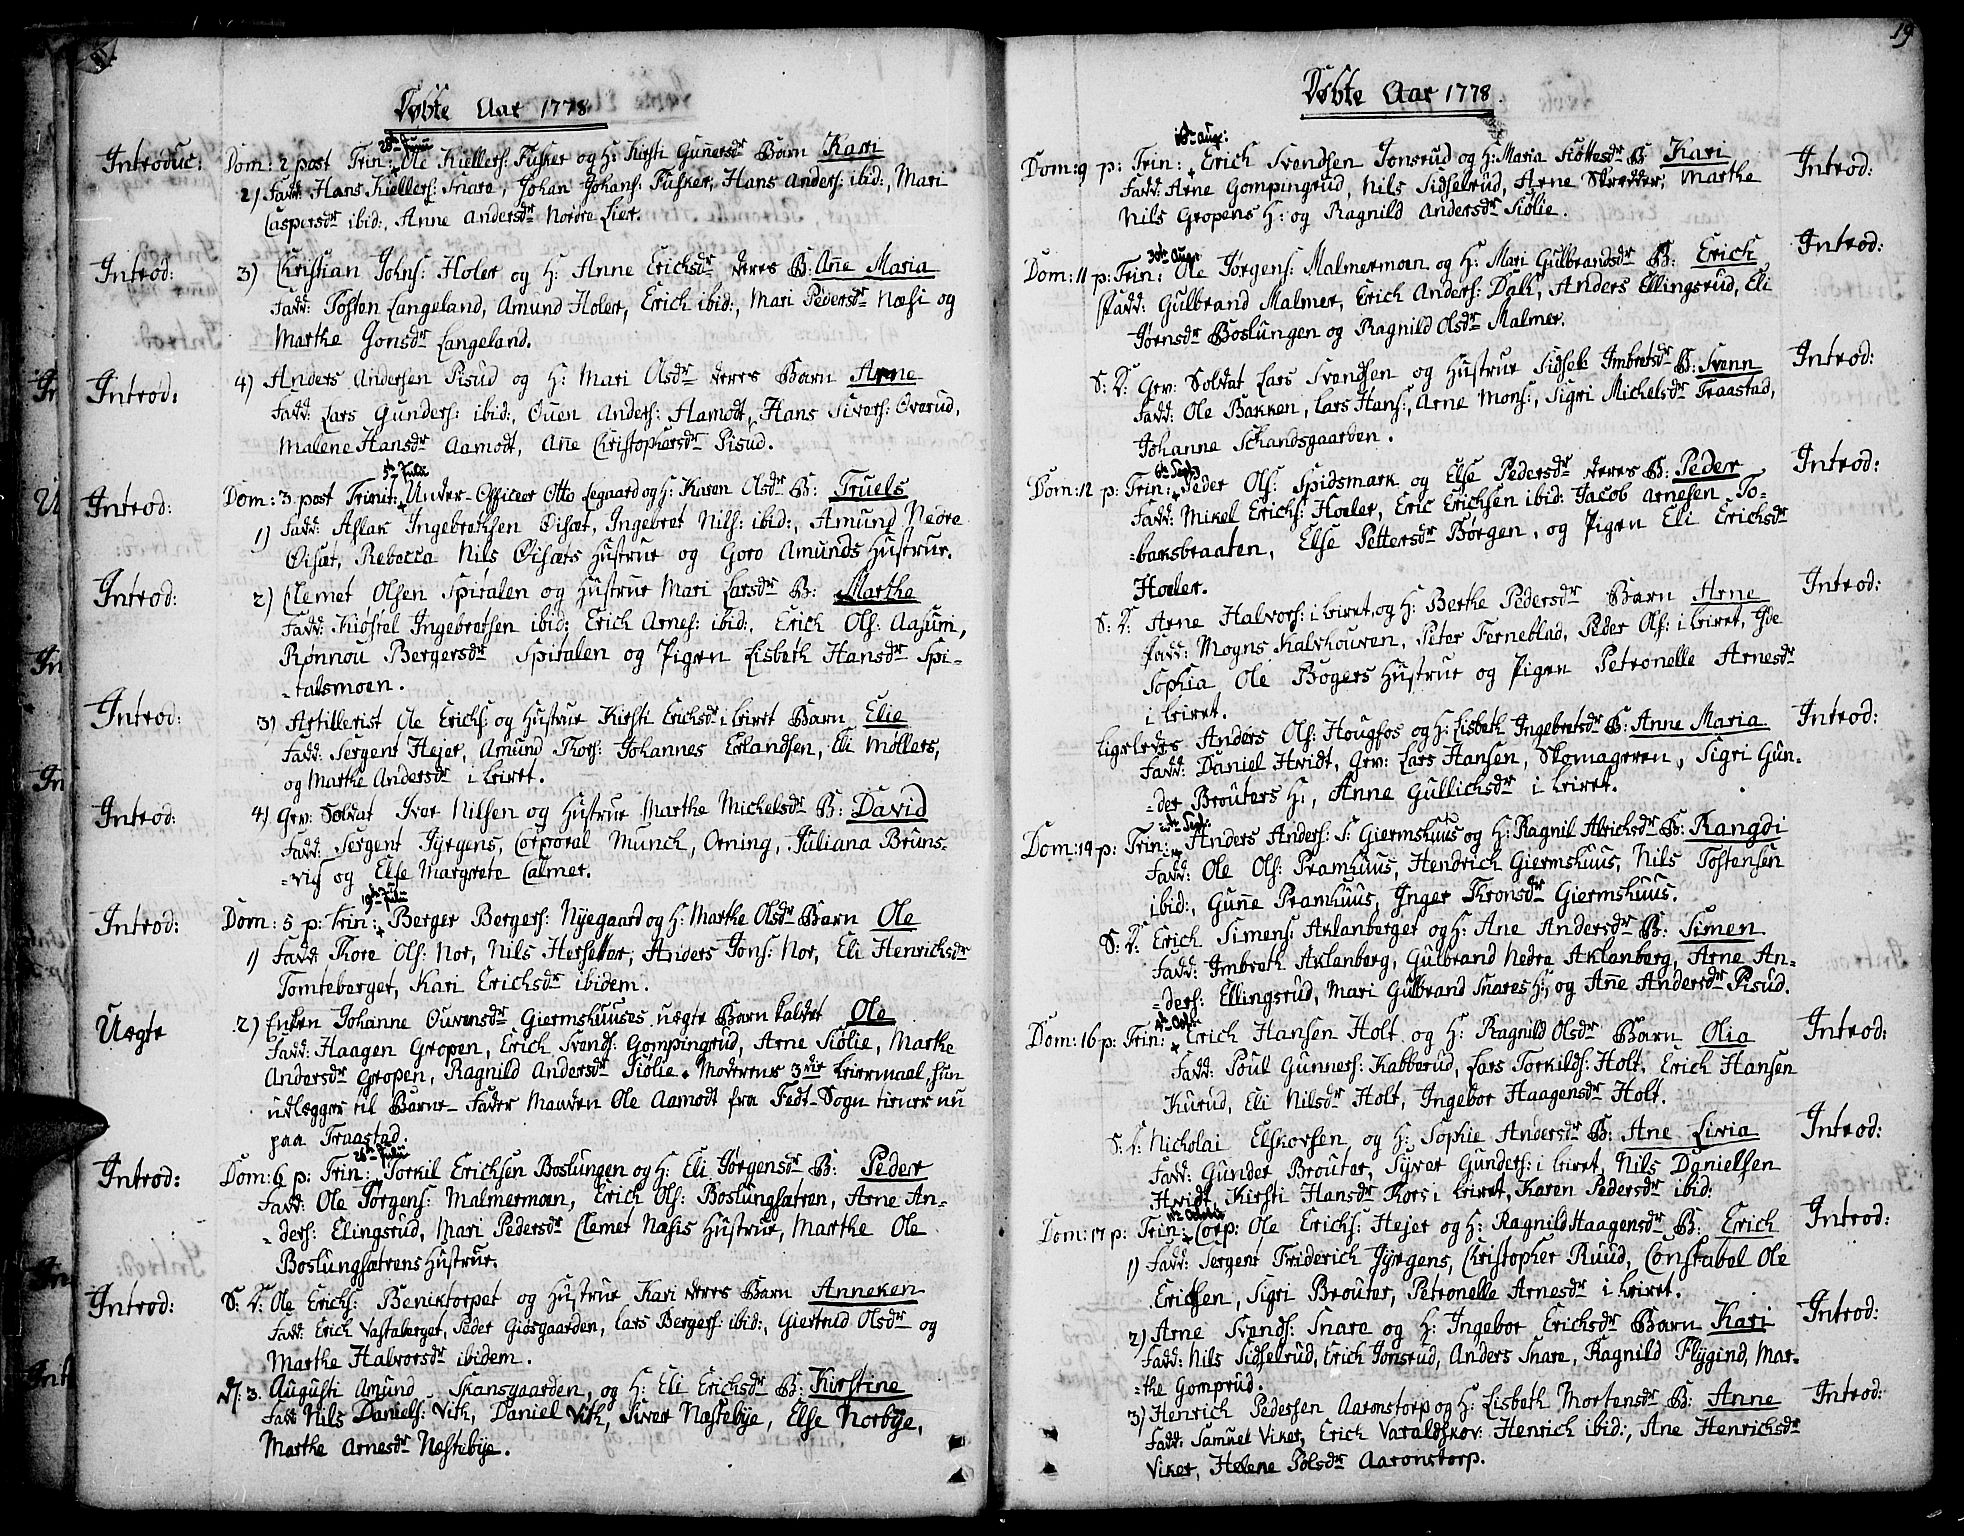 Døbte Aar 1778
28de Junii
Introduc: Dom: 2 post Trin: Ole Kiellers: Fusker og H: Kirsti Guñersdr Barn Kari
2) Fadd: Hans Kiellers: Snare, Johan Johans: Fusker, Hans Anders: ibid:, Mari
Caspersdr ibid:, Anne Andersdr Nordre Lier.
Introd: 3) Christian Johns: Holer og H: Anne Ericksdr deres B: Añe Maria
Fadd: Tosten Langeland, Amund Holer, Erich ibid:, Mari Pedersdr Næsi og
Marthe Gonsdr Langeland.
Introd: 4) Anders Andersen Pisud og H: Mari Olsdr deres Barn Arne
Fadd: Lars Gunders: ibid:, Ouen Anders: Aamodt, Hans Sivers: Overud,
Malene Hansdr Aamodt, Añe Christophersdr Pisud.
5te Julii
Introd: Dom: 3 post Trinit: Under-Officeer Otto Legaard og H: Karen Olsdr B: Truels
1) Fadd: Aslak Ingebretsen Øisæt, Ingebret Nils: ibid:, Amund Nedre
Øisæt, Rebecca Nils Øisæts Hustrue og Goro Amunds Hustrue.
Introd: 2) Clemet Olsen Spitalen og Hustrue Mari Larsdr B: Marthe
Fadd: Kiøstel Ingebretsen ibid: Erich Arnes: ibid:, Erich Ols: Aasum,
Rønnou Bergersdr Spitalen og Pigen Lisbeth Hansdr Spi-
-talsmoen.
Introd: 3) Artillerist Ole Erichs: og Hustrue Kirsti Erichsdr i Leiret Barn Elie
Fadd: Sergent Hejer, Amund Thors: Johannes Erlandsen, Eli Møllers,
og Marthe Andersdr i Leiret.
Introd: 4) Gev: Soldat Iver Nilsen og Hustrue Marthe Michelsdr B: David
Fadd: Sergent Jyrgens, Corporal Munck, Orning, Juliana Bruns-
-vig og Else Margrete Calmer.
19de Julii
Introd: Dom: 5 p: Trin: Berger Bergers: Nyegaard og H: Marthe Olsdr Barn Ole
1) Fadd: Tore Ols: Nor, Nils Hersetter, Anders Jons: Nor, Eli Henrichsdr
Tomteberget, Kari Erichsdr ibidem.
Uægte 2) Enken Johanne Ouvensdr Giermshuuses uægte Barn kaldet Ole
Fadd: Haagen Gropen, Erich Svends: Gompingrud, Arne Siølie, Marthe
Andersdr Gropen, Ragnild Andersdr Siølie. Moderens 3die Leiermaal, hun
udlægger til Barne-Fader Manden Ole Aamodt fra Fedt-Sogn tiener nu
paa Traastad.
26de Julii
Introd: Dom: 6 p: Trin: Torkil Erichsen Boslungen og H: Eli Jørgensdr B: Peder
Fadd: Ole Jørgens: Malmermoen, Erich Ols: Boslungsætren, Arne An-
-ders: Elingsrud, Mari Pedersdr Clemet Næsis Hustrue, Marthe Ole
Boslungsætrens Hustrue.
Introd: S: D: Ole Erichs: Bencktorpet og Hustrue Kari deres Barn Anneken
Fadd: Erich Vastaberget, Peder Giøsgaarden, Lars Bergers: ibid:, Giertrud Olsdr og
Marthe Halvorsdr ibidem.
D. 3. Augusti Amund Skansgaarden, og H: Eli Erichsdr B: Kirstine
Fadd: Nils Daniels: Vith, Daniel Vith, Siver Næstebye, Else Norbye,
Marthe Arnesdr Næstebye.
19
Døbte Aar 1778.
16de Aug:
Dom: 9 p: Trin: Erich Svendsen Jonsrud og H: Maria Siøttesdr B: Kari Introd:
Fadd: Arne Gompingrud, Nils Sidselrud, Arne Skredder, Marthe
Nils Gropens H: og Ragnild Andersdr Siølie.
30te Aug:
Dom: 11 p: Trin: Ole Jørgens: Malmermoen og H: Mari Gulbrandsdr B: Erich Introd:
Fadd: Gulbrand Malmer, Erich Anders: Dalk, Anders Ellingsrud, Eli
Jørnsdr Boslungen og Ragnild Olsdr Malmer.
S: D: Gev: Soldat Lars Svendsen og Hustrue Sidsele Imbretsdr B: Svenn Introd:
Fadd: Ole Bakken, Lars Hans:, Arne Mons:, Sigri Michelsdr Traastad,
Johanne Schandsgaarden.
6te Sept:
Dom: 12 p: Trin: Peder Ols: Spidsmark og Else Pedersdr deres B: Peder Introd:
Fadd: Mikel Erichs: Hoeler, Eric Erichsen ibid: Jacob Arnesen To-
-baksbraaten, Else Pettersdr Børgen, og Pigen Eli Erichsdr
Hoeler.
S: D: Arne Halvors: i Leiret, og H: Berthe Pedersdr Barn Arne Introd:
Fadd: Mogns Kalvhouven, Peter Ferneblad, Peder Ols: i Leiret, Ide
Sophia Ole Bøgers Hustrue og Pigen Petronelle Arnesdr
i Leiret.
Ligeledes Anders Ols: Hougfos og H: Lisbeth Ingebretsdr B: Anne Maria Introd:
Fadd: Daniel Hvidt, Gev: Lars Hansen, Skomageren, Sigri Gun-
-der Brouters H:, Anne Gullichsdr i Leiret.
20de Sept:
Dom: 14 p: Trin: Anders Anders: S: Giermshuus og H: Ragnil Alrichsdr B: Rangdi
Fadd: Ole Ols: Pramhuus, Hendrich Giermshuus, Nils Tostensen
ibid:, Guñe Pramhuus, Inger Thronsdr Giermshuus.
S: D: Erich Simens: Aklanberget og H: Ane Andersdr B: Simen
Fadd: Imbreth Aklanberg, Gulbrand Nedre Aklanberg, Arne An-
-ders: Ellingsrud, Mari Gulbrand Snares H:, og Añe Andersdr Pisud.
4de Oct:
Dom: 16 p: Trin: Erich Hansen Holt og H: Ragnild Olsdr Barn Olia Introd:
Fadd: Poul Gunners: Kabberud, Lars Torkilds: Holt, Erich Hansen
Kurud, Eli Nilsdr Holt, Ingebor Haagensdr Holt.
S: D: Nicholai Elskovsen og H: Sophie Andersdr B: Ane Livia Introd:
Fadd: Gunder Brouter, Syver Gunders: i Leiret, Nils Danielsen
Hvidt, Kirsti Hansdr Kors i Leiret, Karen Pedersdr ibid:
11te Octobr
Dom: 17 p: Trin: Corp: Ole Erichs: Hejer og H: Ragnild Haagensdr B: Erich Introd:
1) Fadd: Sergent Friderich Jyrgens, Christopher Ruud, Constabel Ole
Erichsen, Sigri Brouter, Petronelle Arnesdr i Leiret.
2) Arne Svends: Snare og H: Ingebor Erichsdr Barn Kari Introd:
Fadd: Nils Sidselrud, Erich Jonsrud, Anders Snare, Ragnild Flygind, Mar-
-the Gomprud.
3) Henrich Pedersen Aaronstorp og H: Lisbeth Mortensdr B: Anne Introd:
Fadd: Samuel Viker, Erich Varaldskov: Henrich ibid:, Ane Henrichsdr
Viker, Helene Polsdr Aaronstorp.